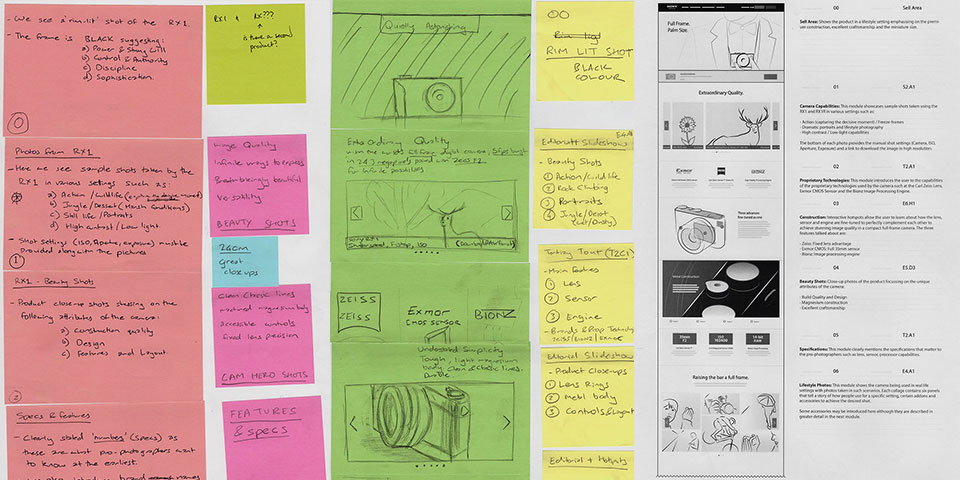 - We see a 'rim-lit' shot of the RX1.
- The frame is BLACK suggesting:
a) Power & Strong Will
b) Control & Authority
c) Discipline
d) Sophistication
0
Photos from RX1
- Here we see sample shots taken by the
RX1 in various settings such as:
a) Action / Wildlife
b) Jungle/Desert (Harsh Conditions)
c) Still life / Portraits
d) High contrast / Low light.
- Shot Settings (ISO, Aperture, exposure) must be
provided along with the pictures
1
RX1 - Beauty Shots
- Product close-up shots stressing on the
following attributes of the camera:
a) Construction quality
b) Design
c) Features and Layout
2
Specs & features
- Clearly stated 'numbers' (specs) as
these are what pro-photographers want
to know at the earliest.
RX1 & RX???
is there a second
product?
Image Quality
Infinite ways to express
Breathtakingly beautiful
Versatility
BEAUTY SHOTS
24cm
great
close ups
Clean Classic lines
magnesium body
accessible controls
Fixed lens precision
CAM HERO SHOTS
FEATURES
& specs
Quietly Astonishing
Extra Ordinary Quality
for infinite possibilities
ZEISS
ZEISS
Exmor
CMOS SENSOR
BIONZ
Understated Simplicity
Tough, light magnesium
body. Clean classic lines.
00
RIM LIT SHOT
BLACK
COLOUR
E4A
Editorial Slideshow
- Beauty Shots
1 Action/Wildlife
2 Rock Climbing
3 Portraits
4 Jungle/Desert
Tertiary Tout (T2C1)
- Main Features
1 Lens
2 Sensor
3 Engine
- Brands & Prop Technology
Zeiss/Bionz/Exmor
Editorial Slideshow
- Product Close-ups
1 Lens Rings
2 Metal body
3 Controls & Layout
Editorial + Hotspots
SONY
Full Frame.
Palm Size.
Extraordinary Quality.
Exmor
BIONZ
Three advances
fine-tuned as one
Metal Construction
Raising the bar a full frame.
00 Sell Area
Sell Area: Shows the product in a lifestyle setting emphasising on the premi-
um construction, excellent craftsmanship and the miniature size.
01 S2.A1
Camera Capabilities: This module showcases sample shots taken using the
RX1 and RX1R in various settings such as:
- Action (capturing the decisive moment) / Freeze-frames
- Dramatic portraits and lifestyle photography
- High contrast / Low-light capabilities
The bottom of each photo provides the manual shot settings (Camera, ISO,
Aperture, Exposure) and a link to download the image in high resolution.
02 T2.A1
Proprietary Technologies: This module introduces the user to the capabilities
of the proprietary technologies used by the camera such as the Carl Zeiss Lens,
Exmor CMOS Sensor and the Bionz Image Processing Engine.
03 E6.H1
Construction: Interactive hotspots allow the user to learn about how the lens,
sensor and engine are fine tuned to perfectly complement each other to
achieve stunning image quality in a compact full-frame camera. The three
features talked about are:
- Zeiss: Fixed lens advantage
- Exmor CMOS: Full 35mm sensor
- Bionz: Image processing engine
04 E5.D3
Beauty Shots: Close up photos of the product focusing on the unique
attributes of the camera:
- Build Quality and Design
- Magnesium construction
- Excellent craftsmanship
05 T2.A1
Specifications: This module clearly mentions the specifications that matter to
the pro-photographers such as lens, sensor, processor capabilities.
06 E4.A1
Lifestyle Photos: This module shows the camera being used in real life
settings with photos taken in such scenarios. Each collage contains six panels
that tell a story of how people use for a specific setting, certain addons and
accessories to achieve the desired shot.
Some accessories may be introduced here although they are described in
greater detail in the next module.